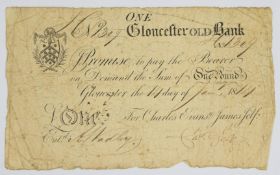 ONE
Gloucester OLD Bank
I Promise to pay the Bearer
on Demand the Sum of One Pound
Gloucester the 14 day of Jan.y 1814
For Charles Evans & James Jelf
£ One
Ent.d